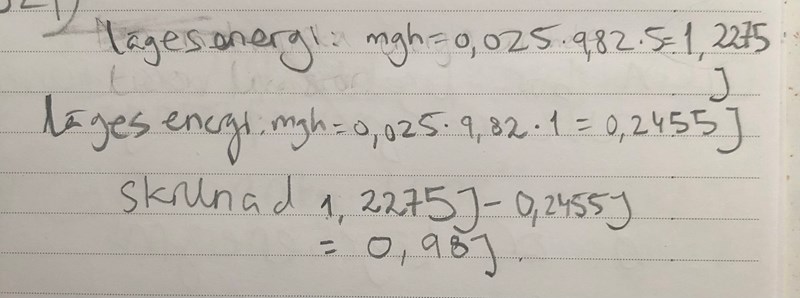 Lägesenergi: mgh=0,025·9,82·5=1,2275
J
Lägesenergi: mgh=0,025·9,82·1=0,2455J
skillnad 1,2275J-0,2455J
= 0,98J